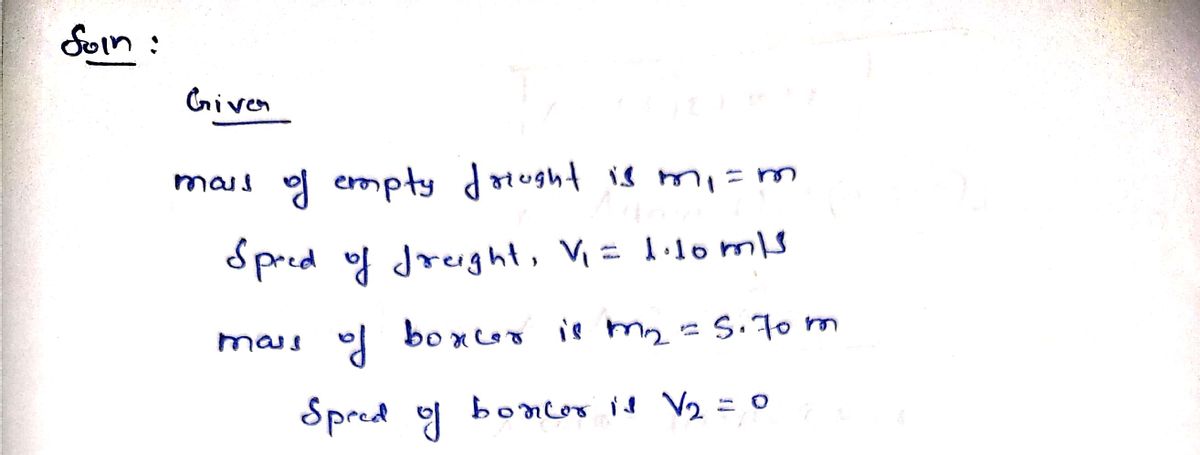 Soln :
Given
mass of empty frieght is m₁ = m
Speed of freight, V₁ = 1.10 m/s
mass of boxcar is m₂ = 5.70 m
Speed of boxcar is V₂ = 0